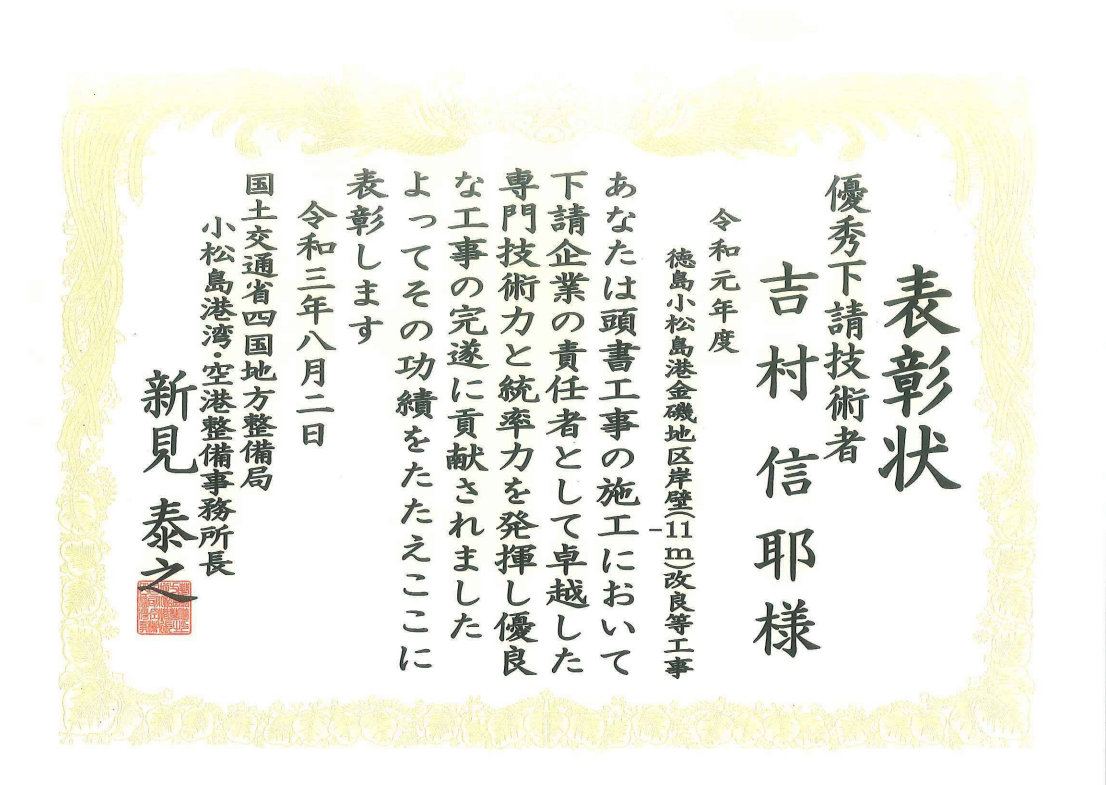 表彰状
優秀下請技術者
吉村信耶様
令和元年度
徳島小松島港金磯地区岸壁(-11m)改良等工事
あなたは頭書工事の施工において
下請企業の責任者として卓越した
専門技術力と統率力を発揮し優良
な工事の完遂に貢献されました
よってその功績をたたえここに
表彰します
令和三年八月二日
国土交通省四国地方整備局
小松島港湾・空港整備事務所長
新見泰之